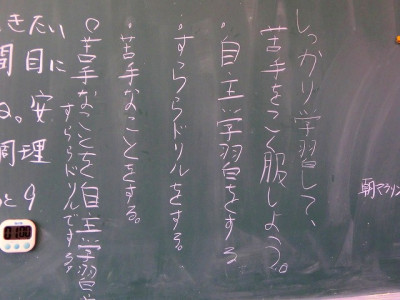 朝マラソン
しっかり学習して、
苦手をこく服しよう。
・自主学習をする
・すららドリルをする。
・苦手なことをする。
○苦手なことを自主学習や
すららドリルでする。
きたい
間目に
る。安
調理
と9